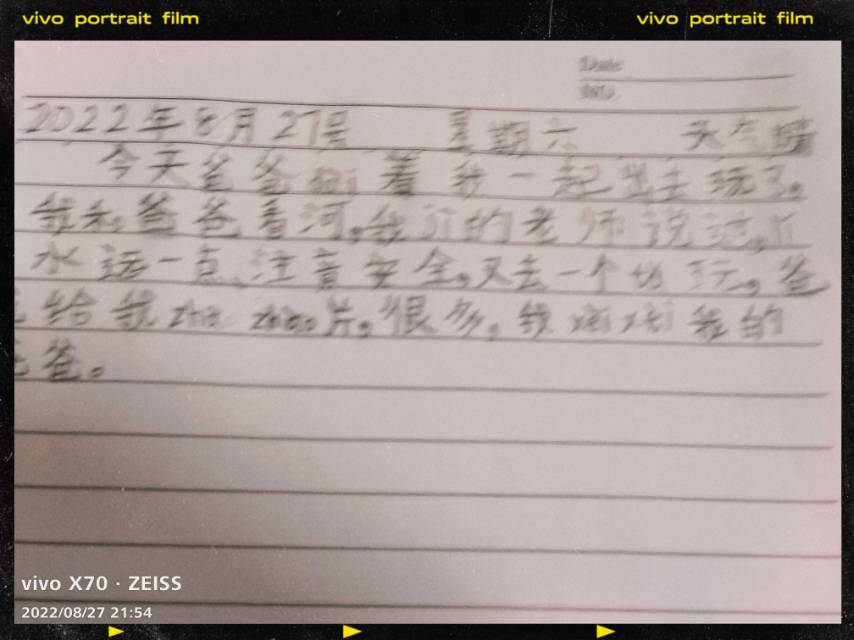 vivo portrait film vivo portrait film
Date
NO.
2022年8月27号 星期六 天气晴
今天爸爸 着我一起出去玩了。
我和爸爸看河。我们的老师说过,
水远一点,注音安全。又去一个 玩。爸
爸给我 片。很多。我xiexie我的
爸爸。
vivo X70 · ZEISS
2022/08/27 21:54